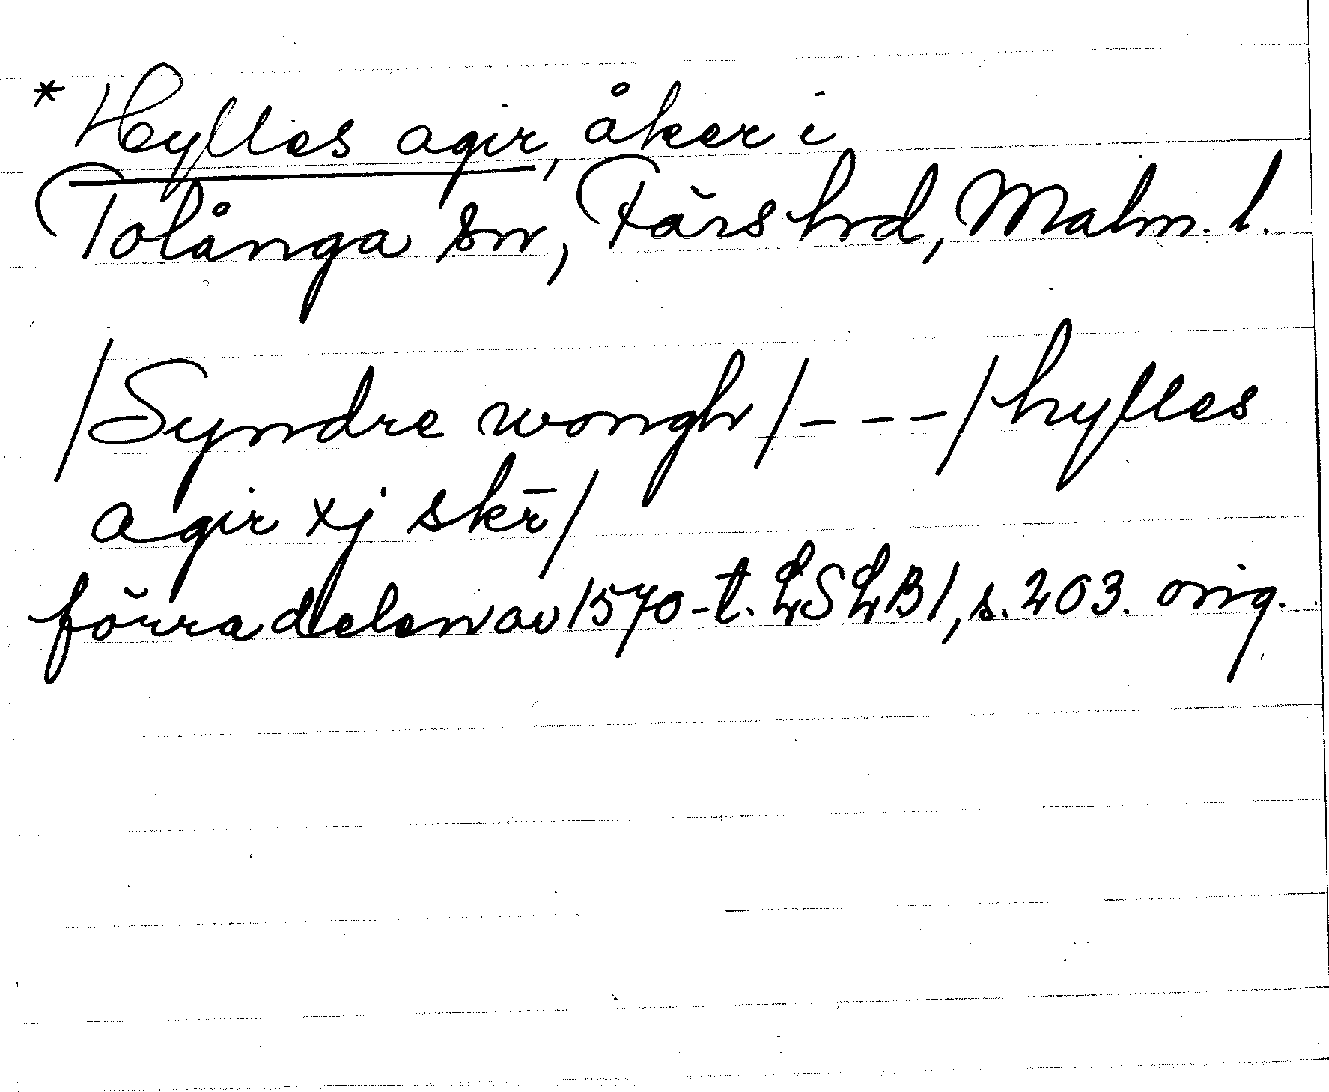 * Hylles agir, åker i
Tolånga sn, Färs hrd, Malm. l.
/Syndre wongh/ - - - /hylles
agir xj skr̄/
förra delen av 1570-t. LSLB 1, s. 203. orig.